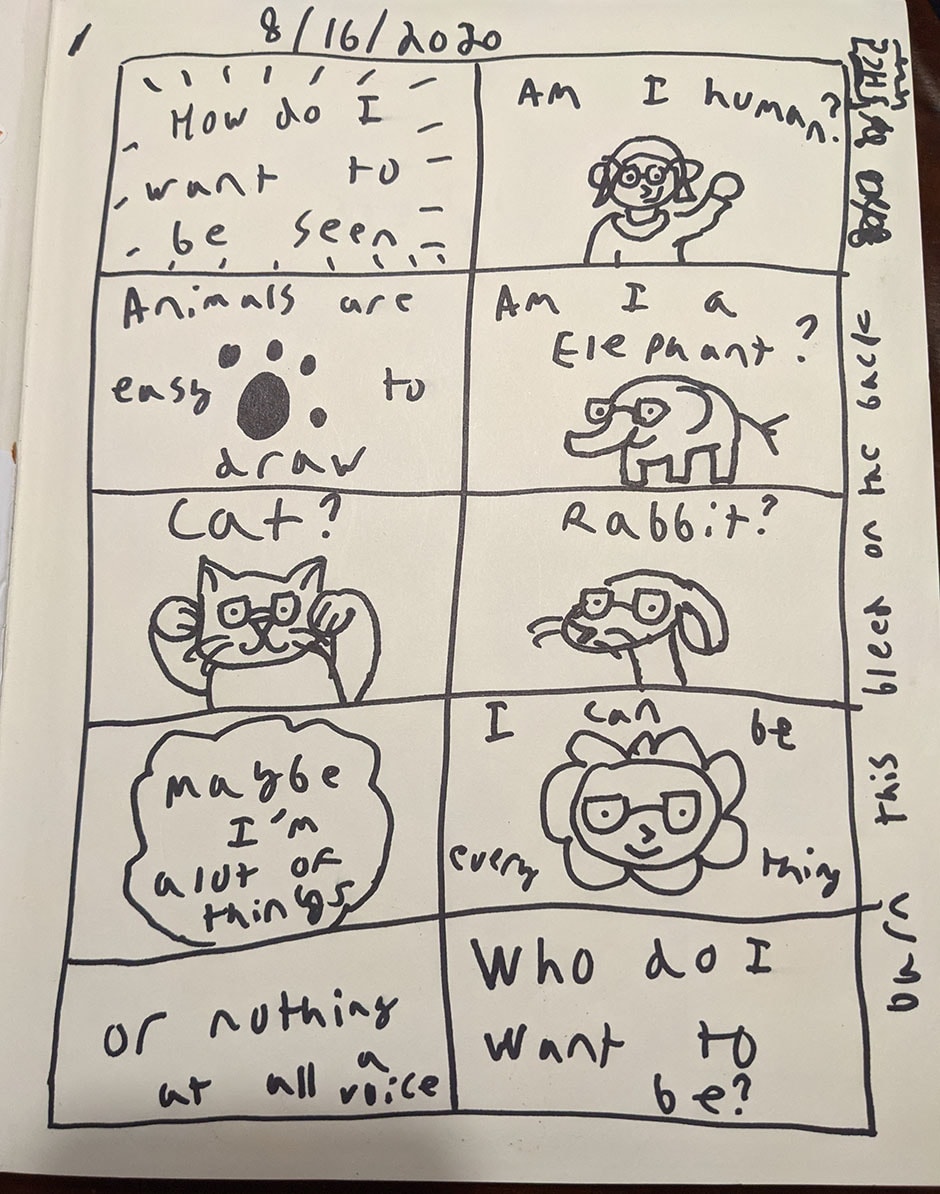 8/16/2020
How do I
want to
be seen
Am I human?
Animals are
easy to
draw
Am I a
Elephant?
Cat?
Rabbit?
maybe
I'm
a lot of
things
I can be
every thing
or nothing
at all a
voice
Who do I
want to
be?
this bleed on the back